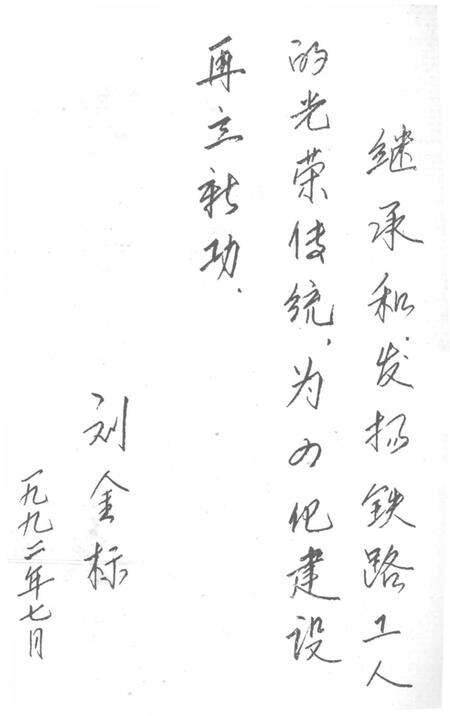 继承和发扬铁路工人
的光荣传统,为四化建设
再立新功.
刘金标
一九九二年七月